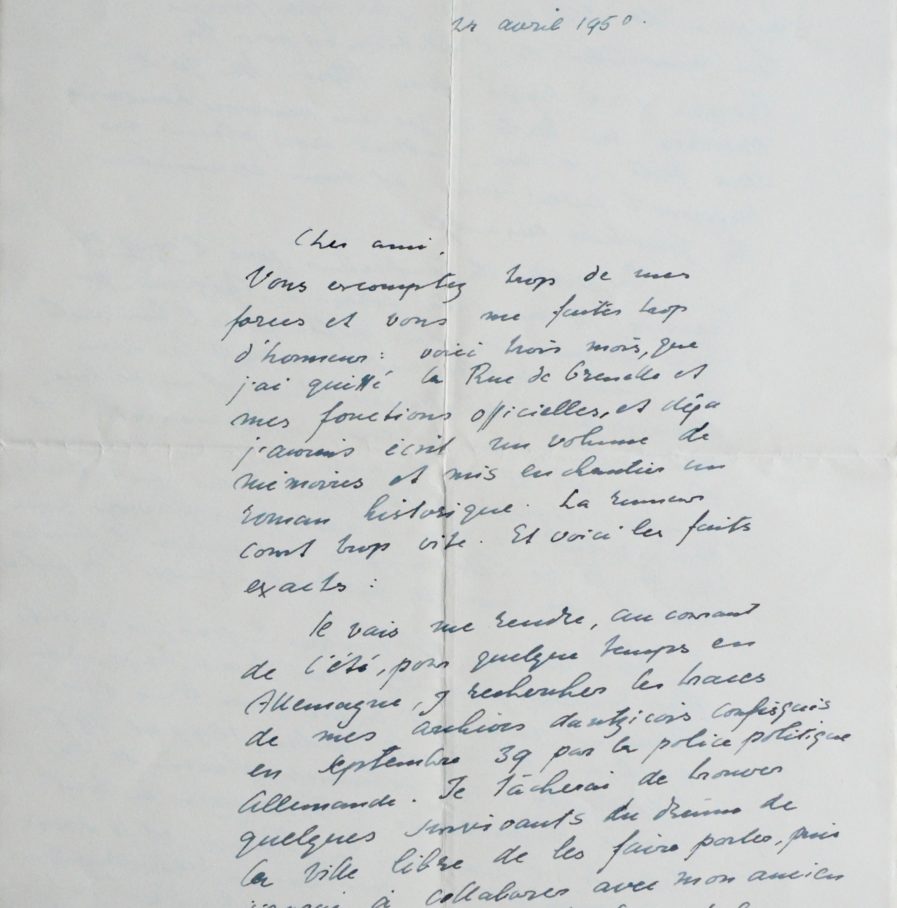 24 avril 1950.
Cher ami,
Vous escomptez trop de mes
forces et vous me faites trop
d'honneur : voici trois mois, que
j'ai quitté la Rue de Grenelle et
mes fonctions officielles, et déjà
j'aurais écrit un volume de
mémoires et mis en chantier un
roman historique. La rumeur
court trop vite. Et voici les faits
exacts :
Je vais me rendre, au courant
de l'été, pour quelque temps en
Allemagne, y rechercher les traces
de mes archives dantzicois confisqués
en septembre 39 par la police politique
allemande. Je tâcherai de trouver
quelques survivants du drame de
la ville libre de les faire parler, puis
à collaborer avec mon ancien